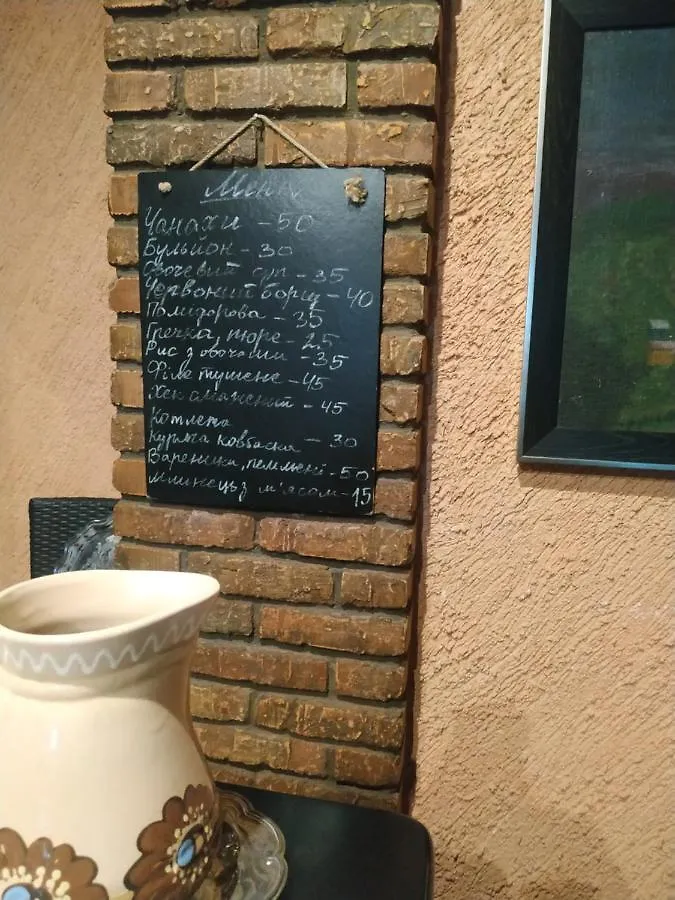 Меню
Чанахи - 50
Бульйон - 30
Овочевий суп - 35
Червоний борщ - 40
Помидорова - 35
Гречка, пюре - 25
Рис з овочами - 35
Філе тушене - 45
Хек смажений - 45
Котлета
Куряча ковбаска - 30
Вареники, пельмені - 50
Млинець з м'ясом - 15